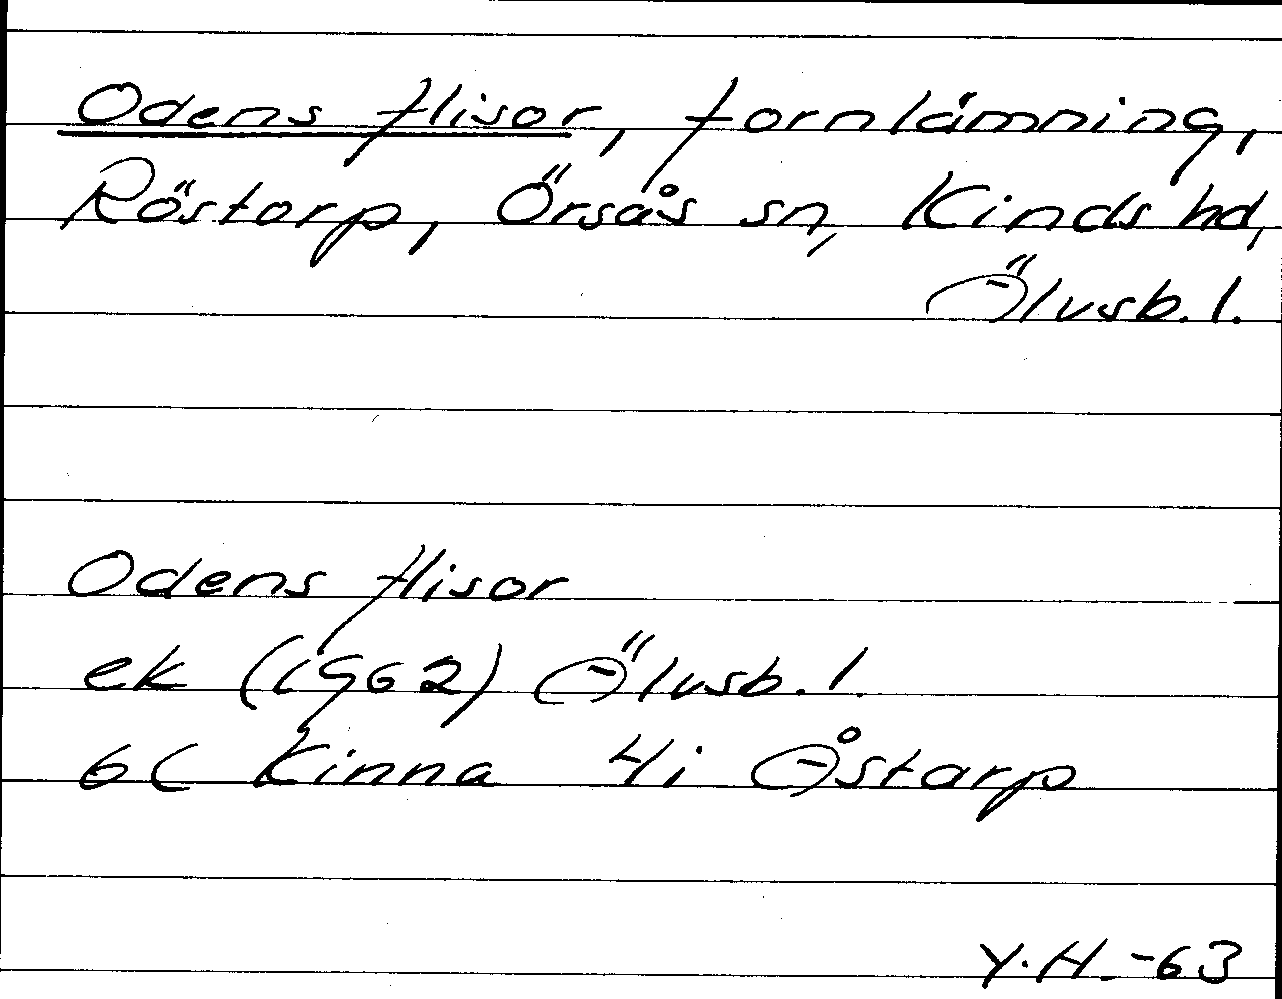 Odens flisor, fornlämning,
Röstorp, Örsås sn, Kinds hd,
Älvsb. l.
Odens flisor
ek (1962) Älvsb. l.
6C Kinna 4i Åstarp
Y.H. -63